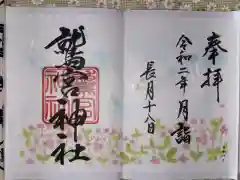 奉拝
令和二年月詣
長月十八日
鷲宮神社